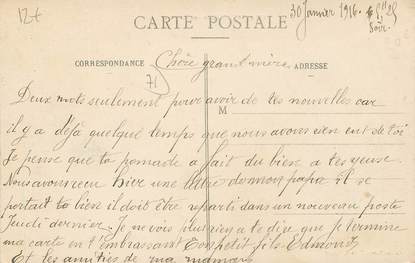 12t
30 Janvier 1916.
Soir.
CARTE POSTALE
CORRESPONDANCE
Chère grand mère
ADRESSE
71
M
Deux mots seulement pour avoir de tes nouvelles car
il y a déja quelque temps que nous avons rien eut de toi
Je pense que ta pomade a fait du bien a tes yeuse
Nous avons reçu hier une lettre de mon papa il se
portait to bien il doit être reparti dans un nouveau poste
Jeudi dernier. Je ne vois plus rien a te dire que je termine
ma carte en t'embrassant Ton petit fils Edmond
Et les amitiés de ma maman